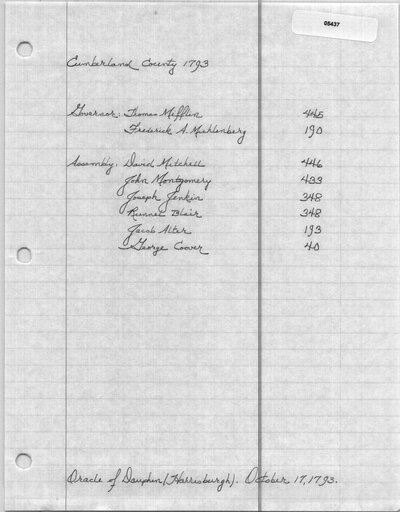 05437
Cumberland County 1793
Governor: Thomas Mifflin 445
Frederick A. Muhlenberg 190
Assembly: David Mitchell 446
John Montgomery 433
Joseph Jenkin 348
Runnel Blair 348
Jacob Alter 193
George Coover 40
Oracle of Dauphin (Harrisburgh). October 17, 1793.